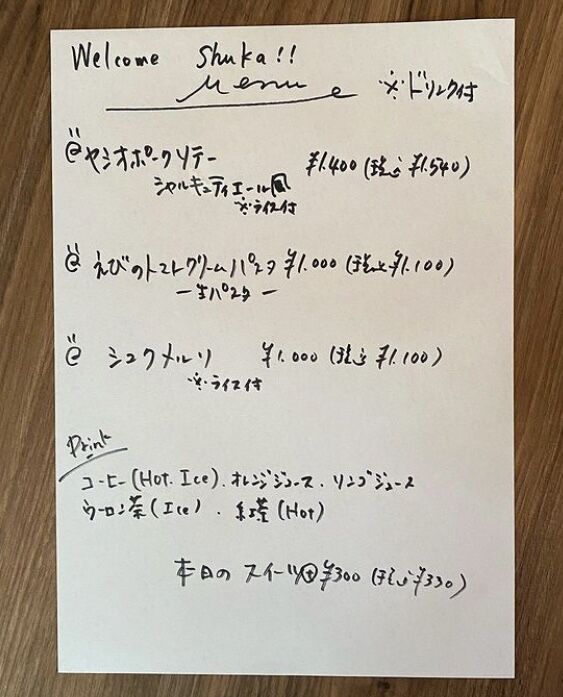 Welcome Shuka!!
Menu
※ドリンク付
@ヤシオポークソテー ¥1.400(税込¥1.540)
シャルキュティエール風
※ライス付
@えびのトマトクリームパスタ ¥1.000(税込¥1.100)
ー生パスター
@シュクメルリ ¥1.000(税込¥1.100)
※ライス付
Drink
コーヒー(Hot.Ice).オレンジジュース.リンゴジュース
ウーロン茶(Ice).紅茶(Hot)
本日のスイーツ⊕¥300(税込¥330)